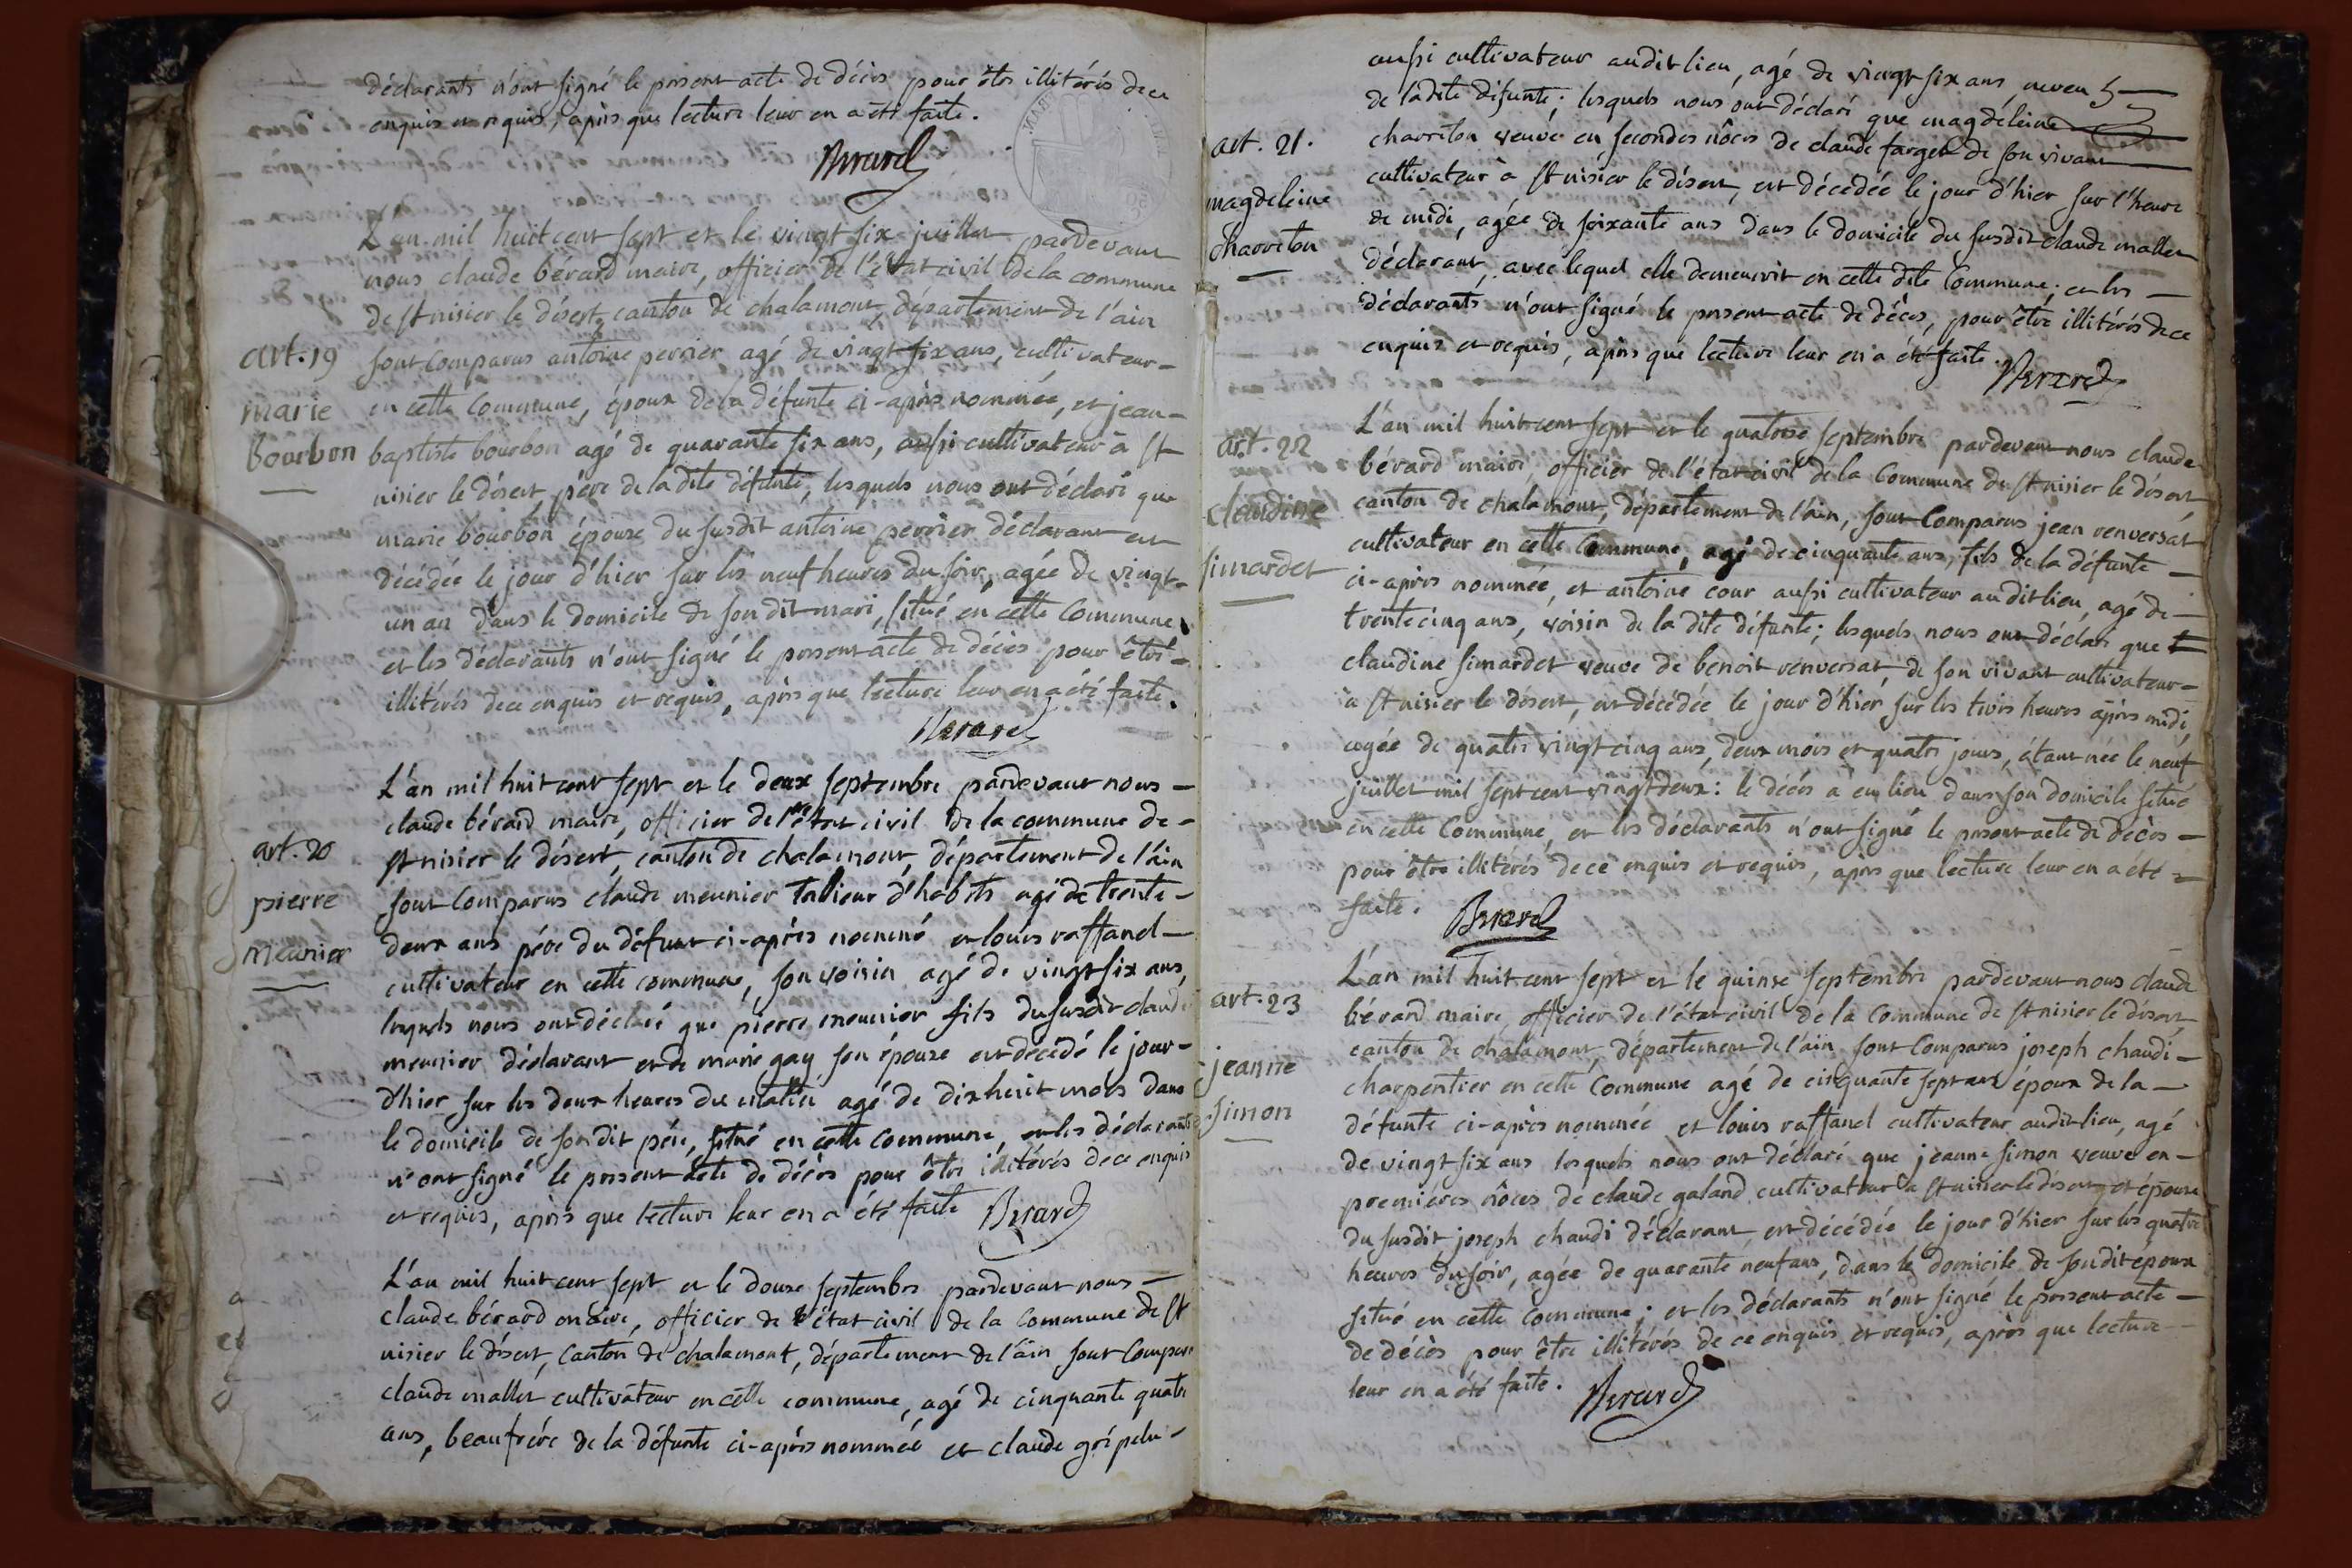 déclarants n'ont signé le présent acte de décès pour être illitérés de ce
enquis et requis, après que lecture leur en a été faite.
Berard
L'an mil huit cent sept et le vingt six juillet pardevant
nous claude bérard maire, officier de l'état civil de la commune
de st nisier le désert, canton de chalamont, département de l'ain
art. 19
marie
Bourbon
sont comparus antoine perrier agé de vingt six ans, cultivateur
en cette commune, époux de la défunte ci-après nommée, et jean-
baptiste bourbon agé de quarante six ans, aussi cultivateur à st
nisier le désert, père de la dite défunte, lesquels nous ont déclaré que
marie bourbon épouse du susdit antoine perrier déclarant est
décédée le jour d'hier sur les neuf heures du soir, agée de vingt-
un an dans le domicile de son dit mari, situé en cette commune,
et les déclarants n'ont signé le présent acte de décès pour être
illitérés de ce enquis et requis, après que lecture leur en a été faite.
Berard
L'an mil huit cent sept et le deux septembre pardevant nous
claude bérard maire, officier de l'état civil de la commune de
art. 20
pierre
meunier
st nisier le désert, canton de chalamont, département de l'ain
sont comparus claude meunier tallieur d'habits agé de trente-
deux ans père du défunt ci-après nommé et louis raffand
cultivateur en cette commune, son voisin agé de vingt six ans,
lesquels nous ont déclaré que pierre meunier fils du susdit claude
meunier déclarant et de marie gay son épouse est décédé le jour
d'hier sur les deux heures du matin agé de dix huit mois dans
le domicile de son dit père, situé en cette commune, et les déclarants
n'ont signé le présent acte de décès pour être illitérés de ce enquis
et requis, après que lecture leur en a été faite Berard
L'an mil huit cent sept et le douze septembre pardevant nous
claude bérard maire, officier de l'état civil de la commune de st
nisier le désert, canton de chalamont, département de l'ain sont comparus
claude mallet cultivateur en cette commune, agé de cinquante quatre
ans, beaufrère de la défunte ci-après nommée et claude gripelu
aussi cultivateur audit lieu, agé de vingt six ans neveu
art. 21.
magdeleine
Charreton
de la dite défunte; lesquels nous ont déclaré que magdeleine
charreton veuve en secondes nôces de claude farget de son vivant
cultivateur à st nisier le désert, est décédée le jour d'hier sur l'heure
de midi, agée de soixante ans dans le domicile du susdit claude mallet
déclarant, avec lequel elle demeuroit en cette dite commune; et les
déclarants n'ont signé le présent acte de décès, pour être illitérés de ce
enquis et requis, après que lecture leur en a été faite.
Berard
art. 22
claudine
simardet
L'an mil huit cent sept et le quatorze septembre pardevant nous claude
bérard maire, officier de l'état civil de la commune de st nisier le désert,
canton de chalamont, département de l'ain, sont comparus jean renversat
cultivateur en cette commune, agé de cinquante ans, fils de la défunte
ci-après nommée, et antoine cour aussi cultivateur audit lieu, agé de
trente cinq ans, voisin de la dite défunte; lesquels nous ont déclaré que
claudine simardet veuve de benoit renversat, de son vivant cultivateur
à st nisier le désert, est décédée le jour d'hier sur les trois heures après midi,
agée de quatre vingt cinq ans, deux mois et quatre jours, étant née le neuf
juillet mil sept cent vingt deux: le décès a eu lieu dans son domicile situé
en cette commune, et les déclarants n'ont signé le présent acte de décès
pour être illitérés de ce enquis et requis, après que lecture leur en a été
faite. Berard
art. 23
jeanne
simon
L'an mil huit cent sept et le quinze septembre pardevant nous claude
bérard maire, officier de l'état civil de la commune de st nisier le désert,
canton de chalamont, département de l'ain sont comparus joseph chaudi
charpentier en cette commune agé de cinquante sept ans époux de la
défunte ci-après nommée et louis raffand cultivateur audit lieu, agé
de vingt six ans lesquels nous ont déclaré que jeanne simon veuve en
premières nôces de claude galand cultivateur à st nisier le désert et épouse
du susdit joseph chaudi déclarant, est décédée le jour d'hier sur les quatre
heures du soir, agée de quarante neuf ans, dans le domicile de son dit époux
situé en cette commune; et les déclarants n'ont signé le présent acte
de décès pour être illitérés de ce enquis et requis, après que lecture
leur en a été faite. Berard